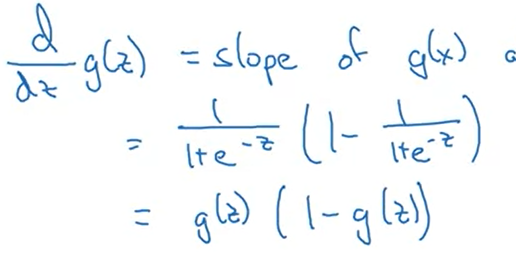 d/dz g(z) = slope of g(x)
= 1/(1+e^-z) (1 - 1/(1+e^-z))
= g(z) (1 - g(z))